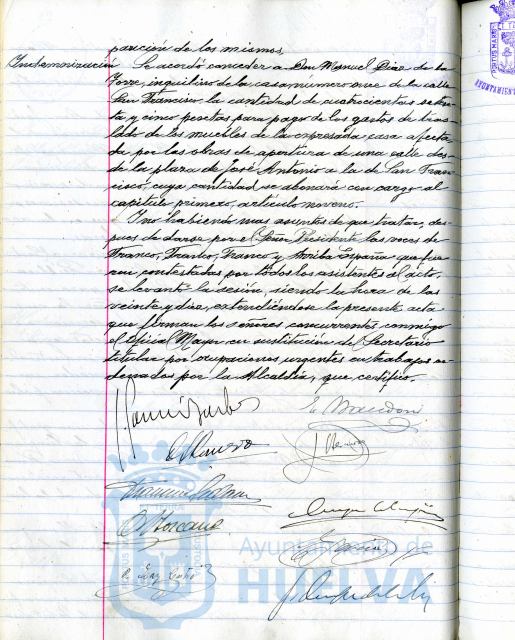 parición de los mismos.
Indemnización Se acordó conceder a Don Manuel Díaz de la
Torre, inquilino de la casa número once de la calle
San Francisco la cantidad de cuatrocientas seten-
ta y cinco pesetas para pago de los gastos de tras-
lado de los muebles de la expresada casa afecta-
da por las obras de apertura de una calle des-
de la plaza de José Antonio a la de San Fran-
cisco, cuya cantidad se abonará con cargo al
capítulo primero, artículo noveno.
Y no habiendo mas asuntos de que tratar, des-
pues de darse por el Señor Presidente las voces de
Franco, Franco, Franco y Arriba España que fue-
ron contestadas por todos los asistentes al acto,
se levantó la sesión, siendo la hora de las
veinte y diez, extendiéndose la presente acta
que firman los señores concurrentes conmigo
el Oficial Mayor en sustitución del Secretario
titular por ocupaciones urgentes en trabajos or-
denados por la Alcaldía, que certifico.
Ayuntamiento de
HUELVA
PORTUS MARIS
AYUNTAMIEN